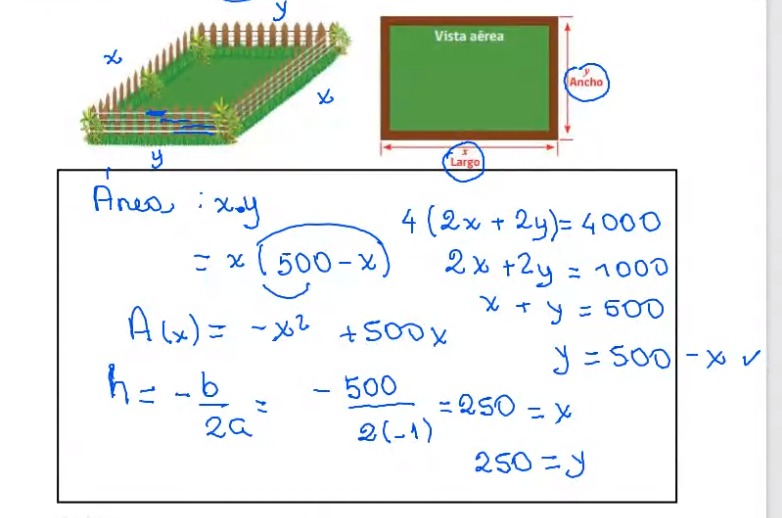 y
x
x
y
Vista aérea
y
Ancho
x
Largo
Área : x.y
= x(500-x)
A(x) = -x² +500x
h = -b/2a = -500/2(-1) = 250 = x
250 = y
4(2x + 2y) = 4000
2x + 2y = 1000
x + y = 500
y = 500 - x ✓